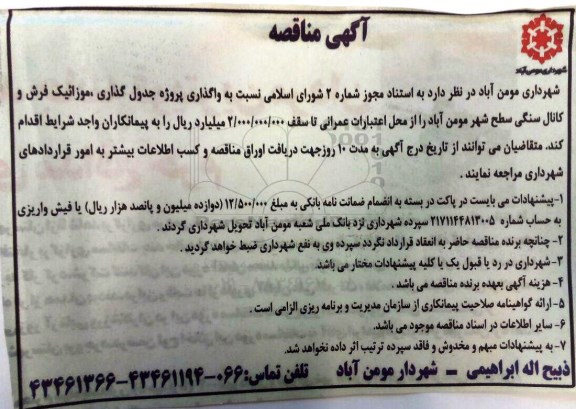 آگهی مناقصه
شهرداری مومن آباد
شهرداری مومن آباد در نظر دارد به استناد مجوز شماره ۲ شورای اسلامی نسبت به واگذاری پروژه جدول گذاری ،موزائیک فرش و
کانال سنگی سطح شهر مومن آباد را از محل اعتبارات عمرانی تا سقف ۲/۰۰۰/۰۰۰/۰۰۰ میلیارد ریال را به پیمانکاران واجد شرایط اقدام
کند. متقاضیان می توانند از تاریخ درج آگهی به مدت ۱۰ روزجهت دریافت اوراق مناقصه و کسب اطلاعات بیشتر به امور قراردادهای
شهرداری مراجعه نمایند .
۱-پیشنهادات می بایست در پاکت در بسته به انضمام ضمانت نامه بانکی به مبلغ ۱۲/۵۰۰/۰۰۰ (دوازده میلیون و پانصد هزار ریال) یا فیش واریزی
به حساب شماره ۲۱۷۱۱۴۴۸۱۳۰۰۵ سپرده شهرداری نزد بانک ملی شعبه مومن آباد تحویل شهرداری گردند .
۲- چنانچه برنده مناقصه حاضر به انعقاد قرارداد نگردد سپرده وی به نفع شهرداری ضبط خواهد گردید .
۳-شهرداری در رد یا قبول یک یا کلیه پیشنهادات مختار می باشد.
۴- هزینه آگهی بعهده برنده مناقصه می باشد .
۵- ارائه گواهینامه صلاحیت پیمانکاری از سازمان مدیریت و برنامه ریزی الزامی است .
۶- سایر اطلاعات در اسناد مناقصه موجود می باشد.
۷- به پیشنهادات مبهم و مخدوش و فاقد سپرده ترتیب اثر داده نخواهد شد.
ذبیح اله ابراهیمی – شهردار مومن آباد تلفن تماس:۰۶۶-۴۳۴۶۱۱۹۴-۴۳۴۶۱۳۶۶